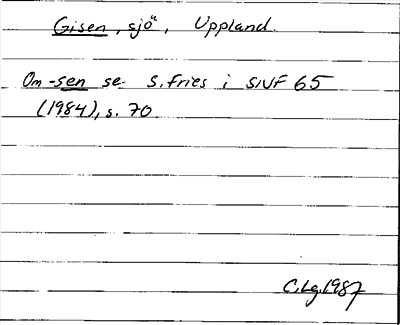 Gisen, sjö, Uppland.
Om -sen se S. Fries i SNF 65
(1984), s. 70.
C.Lg. 1987